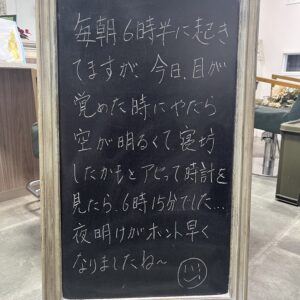 毎朝6時半に起き
てますが、今日、目が
覚めた時にやたら
空が明るくて寝坊
したかもとアセって時計を
見たら、6時15分でした…
夜明けがホント早く
なりましたね〜